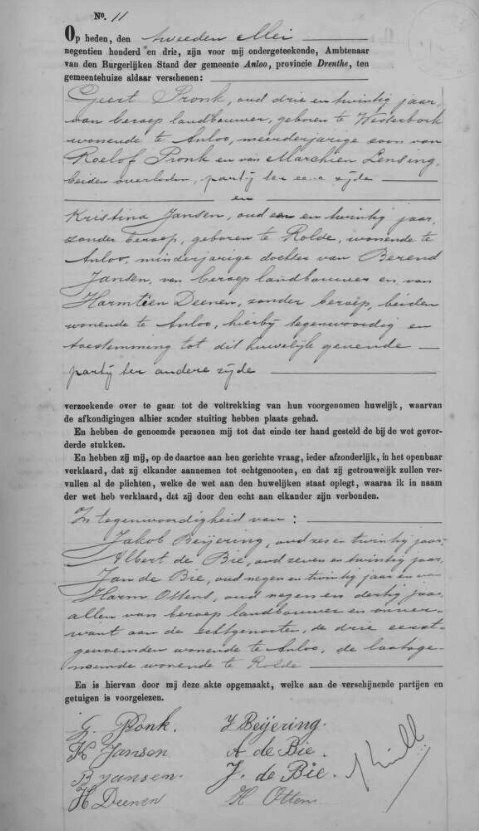 No. 11
Op heden, den tweeden Mei
negentien honderd en drie, zijn voor mij ondergeteekende, Ambtenaar
van den Burgerlijken Stand der gemeente Anloo, provincie Drenthe, ten
gemeentehuize aldaar verschenen:
Geert Pronk, oud drie en twintig jaar,
van beroep landbouwer, geboren te Westerbork
wonende te Anloo, meerderjarige zoon van
Roelof Pronk en van Marchien Lensing,
beiden overleden, partij ter eene zijde
en
Kristina Jansen, oud een en twintig jaar,
zonder beroep, geboren te Rolde, wonende te
Anloo, minderjarige dochter van Berend
Jansen, van beroep landbouwer en van
Harmtien Deenen, zonder beroep, beiden
wonende te Anloo, hierbij tegenwoordig en
toestemming tot dit huwelijk gevende
partij ter andere zijde
verzoekende over te gaan tot de voltrekking van hun voorgenomen huwelijk, waarvan
de afkondigingen alhier zonder stuiting hebben plaats gehad.
En hebben de genoemde personen mij tot dat einde ter hand gesteld de bij de wet gevor-
derde stukken.
En hebben zij mij, op de daartoe aan hen gerichte vraag, ieder afzonderlijk, in het openbaar
verklaard, dat zij elkander aannemen tot echtgenooten, en dat zij getrouwelijk zullen ver-
vullen al de plichten, welke de wet aan den huwelijken staat oplegt, waarna ik in naam
der wet heb verklaard, dat zij door den echt aan elkander zijn verbonden.
In tegenwoordigheid van:
Jakob Beijering, oud zes en twintig jaar,
Albert de Bie, oud zeven en twintig jaar,
Jan de Bie, oud negen en twintig jaar en van
Harm Ottens, oud negen en dertig jaar,
allen van beroep landbouwer en onver-
want aan de echtgenooten, de drie eerst-
genoemden wonende te Anloo, de laatstge-
noemde wonende te Rolde
En is hiervan door mij deze akte opgemaakt, welke aan de verschijnende partijen en
getuigen is voorgelezen.
G. Pronk. J Beijering.
K Jansen A de Bie.
B Jansen. J. de Bie.
H Deenen H Ottens